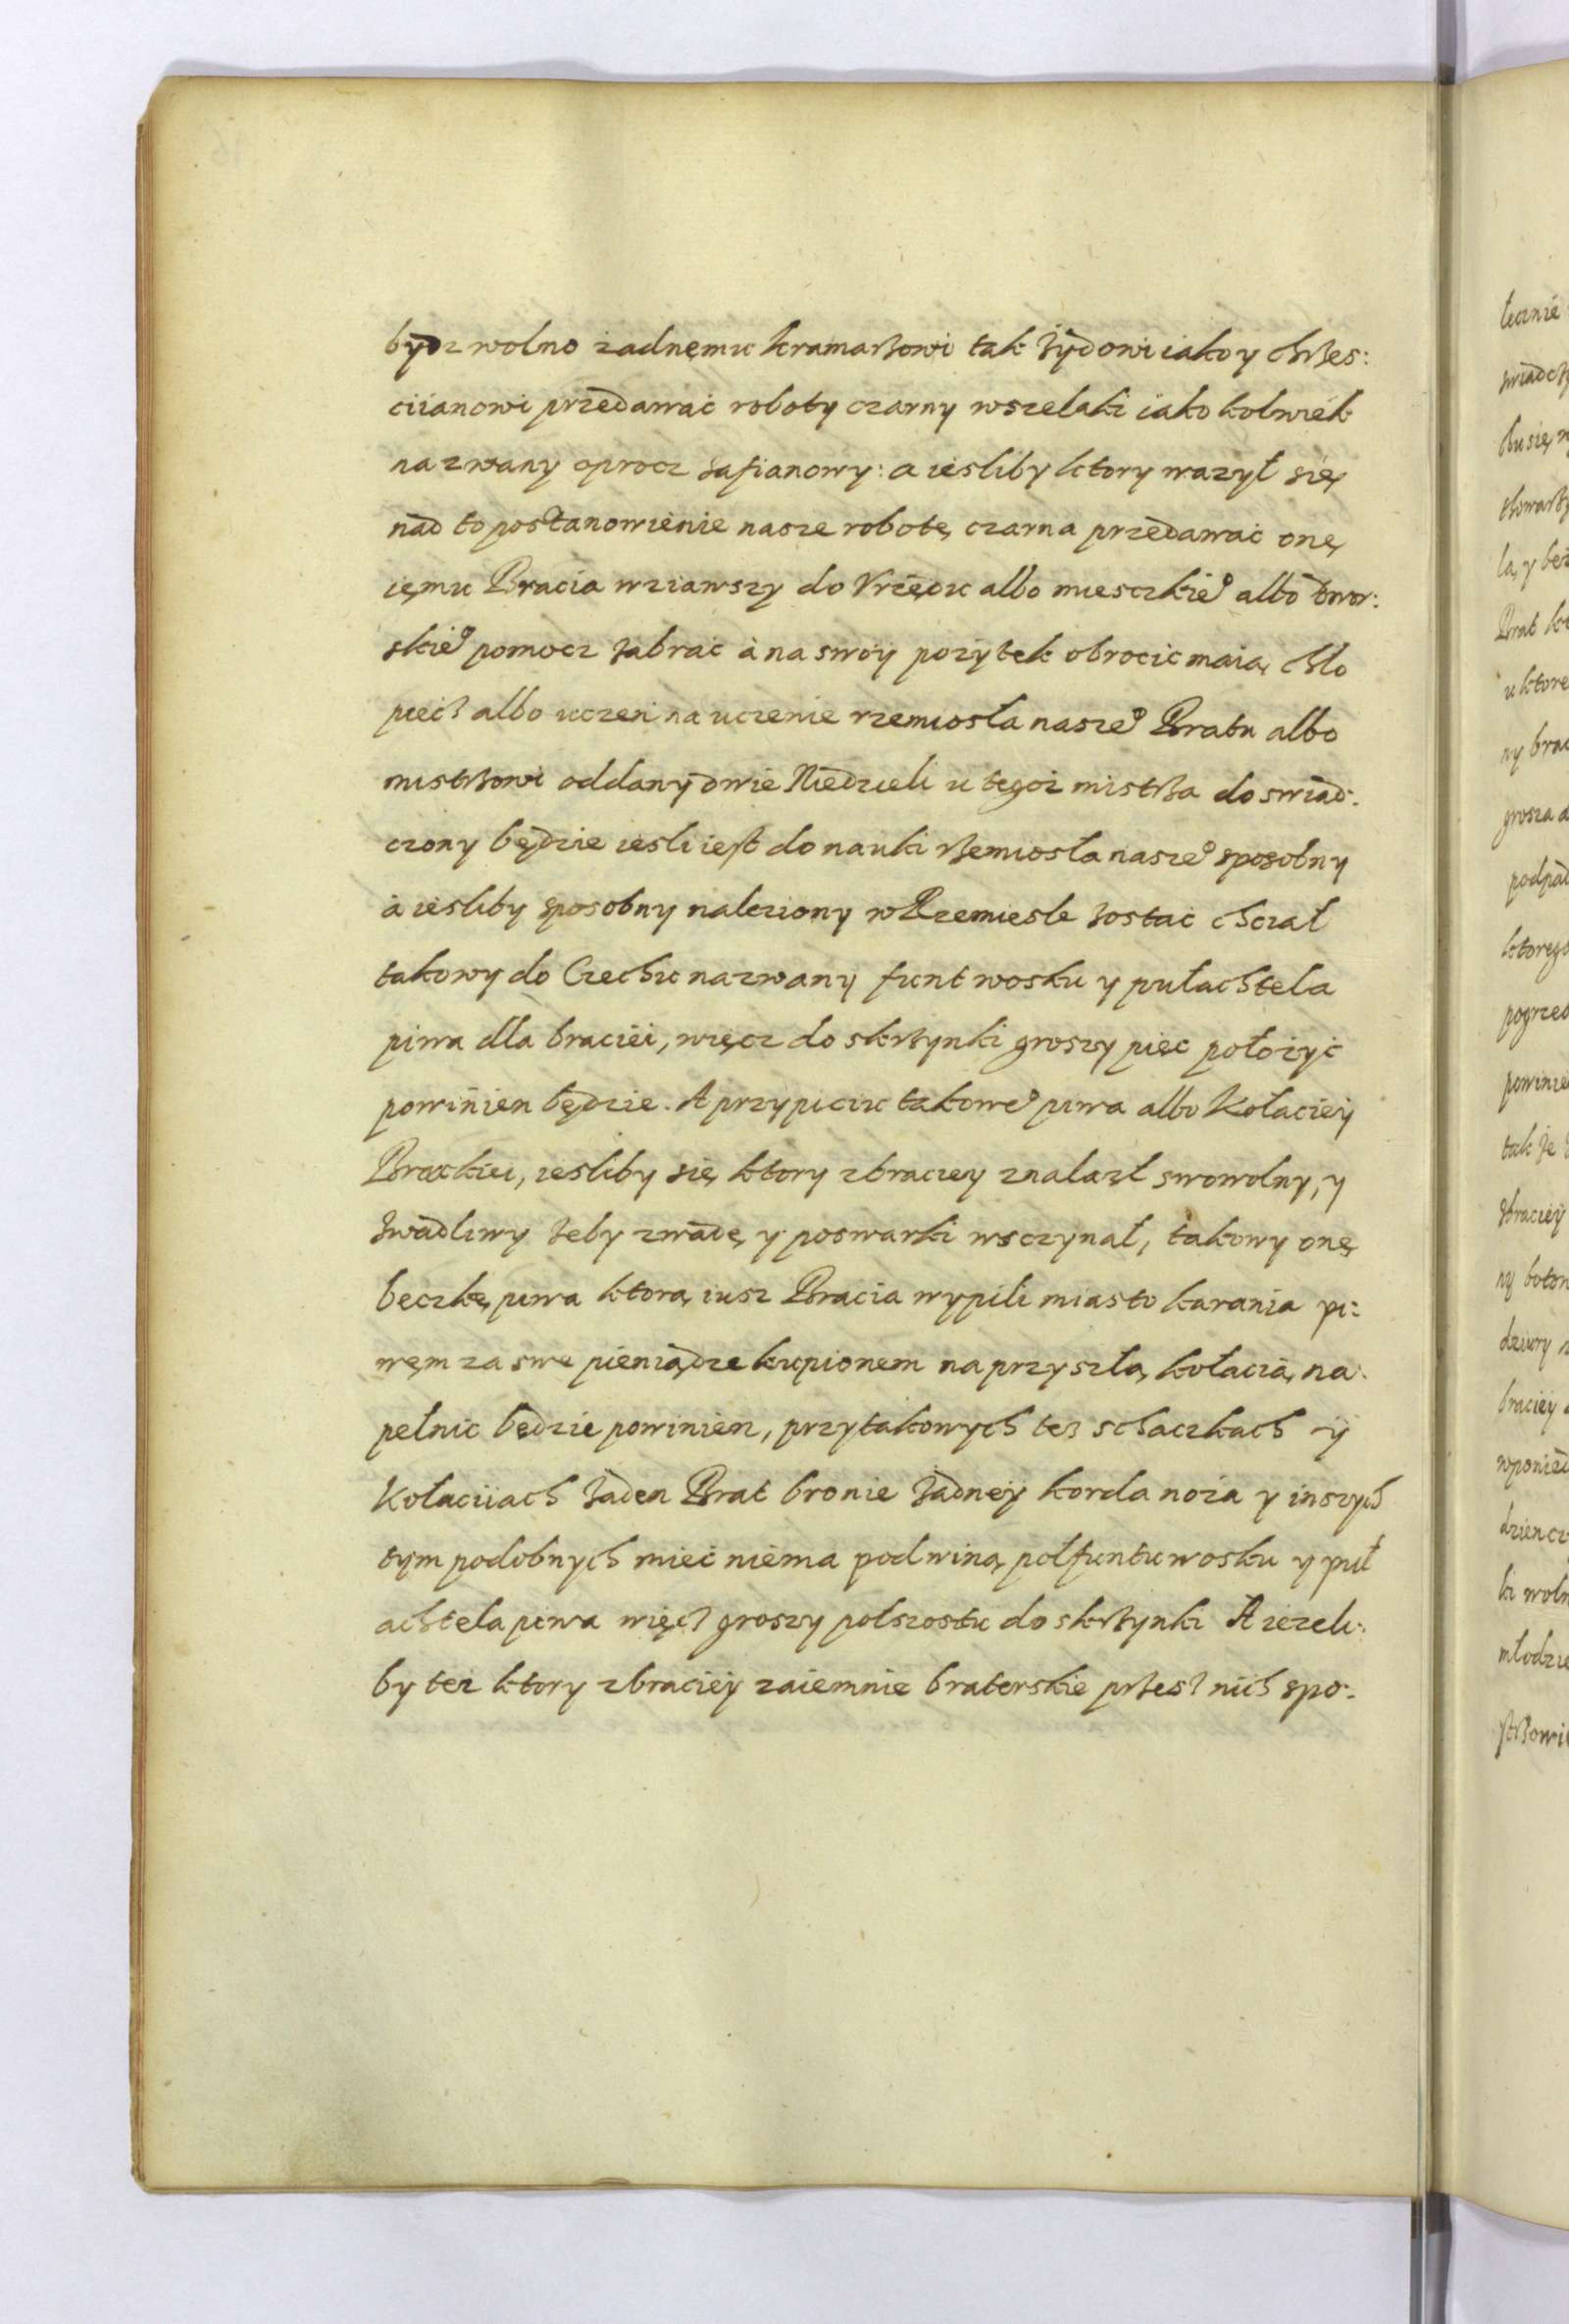 bydz wolno zadnęmu kramarzowi tak Żÿdowi iako y chrzes:
ciianowi przedawać roboty czarny wszelaki iako kolwiek
nazwany oprocz safianowy: a iesliby ktory wazył się
nad to postanowienie nasze robotę czarna przedawać onę
ięmu Bracia wziawszy do Vrzędu albo miesczkie⁰ albo dwor:
skie⁰ pomocz zabrać à na swoÿ pozÿtek obrocic maią, chło
piech albo uczen na uczenie rzemiosła nasze⁰ Bratu albo
mistrzowi oddanÿ dwie Niedzieli u tegoz mistrza doswiad:
czony będzie iesli iest do nauki rzemiosła nasze⁰ sposobny
à iesliby sposobny naleziony w Rzemiesle zostać chciał
takowy do Czechu nazwany funt wosku y pułachtela
piwa dla braciéi, więcz do skrzynki groszy pięc położyć
powinien będzie. A przy piciu takowe⁰ piwa albo Kołacieÿ
Brackiei, iesliby się ktory zbraciey znalazł swowolny, y
zwadliwy zeby zwadę y poswarki wsczynał, takowy onę
beczkę piwa ktorą iusz Bracia wypili miasto karania pi:
węm za swe pieniądze kupionem na przyszłą kołacią na:
pełnic będzie powinien, przy takowych tez schaczkach ÿ
Kołaciiach żaden Brat bronie żadneÿ korda noża y inszych
tym podobnych mieć niema pod winą połfuntu wosku y puł
achtela piwa więcz groszy połszostu do skrzynki A iezeli:
by tez ktory zbracieÿ zaiemnie braterskie przesz nich spo:
łecznie
swiadcz
chu się
la, y bez
Brat kt
u ktore
ny brac
grosza a
podpad
ktorego
pogrzeb
powinie
tak ze
zbracieÿ
braciey
dzien cz
ki woln
młodzie